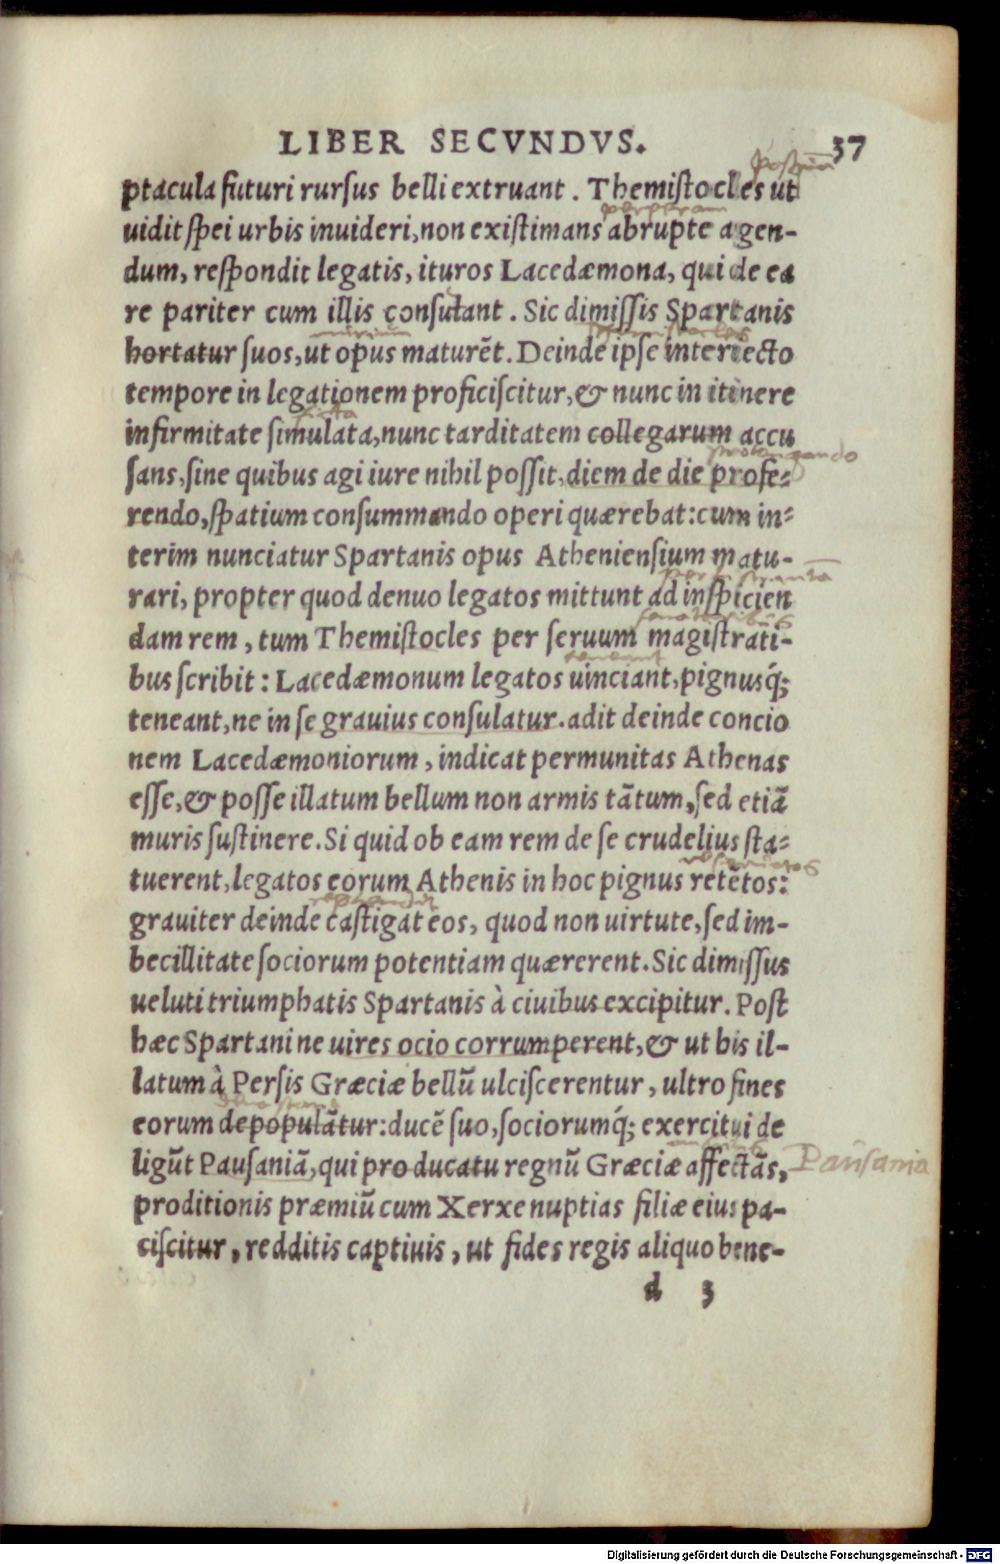 LIBER SECVNDVS. 37
postquā
ptacula futuri rursus belli extruant. Themistocles ut
perperam
uidit spei urbis inuideri, non existimans abrupte agen-
dum, respondit legatis, ituros Lacedæmona, qui de ea
re pariter cum illis consulant. Sic dimissis Spartanis
hortatur suos, ut opus maturēt. Deinde ipse interiecto
tempore in legationem proficiscitur, & nunc in itinere
ficta
infirmitate simulata, nunc tarditatem collegarum accu
prolongando
sans, sine quibus agi iure nihil possit, diem de die profe-
rendo, spatium consummando operi quærebat: cum in-
terim nunciatur Spartanis opus Atheniensium matu-
rari, propter quod denuo legatos mittunt ad inspicien
senatoribus
dam rem, tum Themistocles per seruum magistrati-
teneant
bus scribit: Lacedæmonum legatos uinciant, pignusq́;
teneant, ne in se grauius consulatur. adit deinde concio
nem Lacedæmoniorum, indicat permunitas Athenas
esse, & posse illatum bellum non armis tātum, sed etiā
muris sustinere. Si quid ob eam rem de se crudelius sta-
tuerent, legatos eorum Athenis in hoc pignus retētos:
grauiter deinde castigat eos, quod non uirtute, sed im-
becillitate sociorum potentiam quærerent. Sic dimissus
ueluti triumphatis Spartanis à ciuibus excipitur. Post
hæc Spartani ne uires ocio corrumperent, & ut bis il-
latum à Persis Græciæ bellū ulciscerentur, ultro fines
eorum depopulātur: ducē suo, sociorumq́; exercitui de
ligūt Pausaniā, qui pro ducatu regnū Græciæ affectās, Pausania
proditionis præmiū cum Xerxe nuptias filiæ eius pa-
ciscitur, redditis captiuis, ut fides regis aliquo bene-
d 3
Digitalisierung gefördert durch die Deutsche Forschungsgemeinschaft - DFG